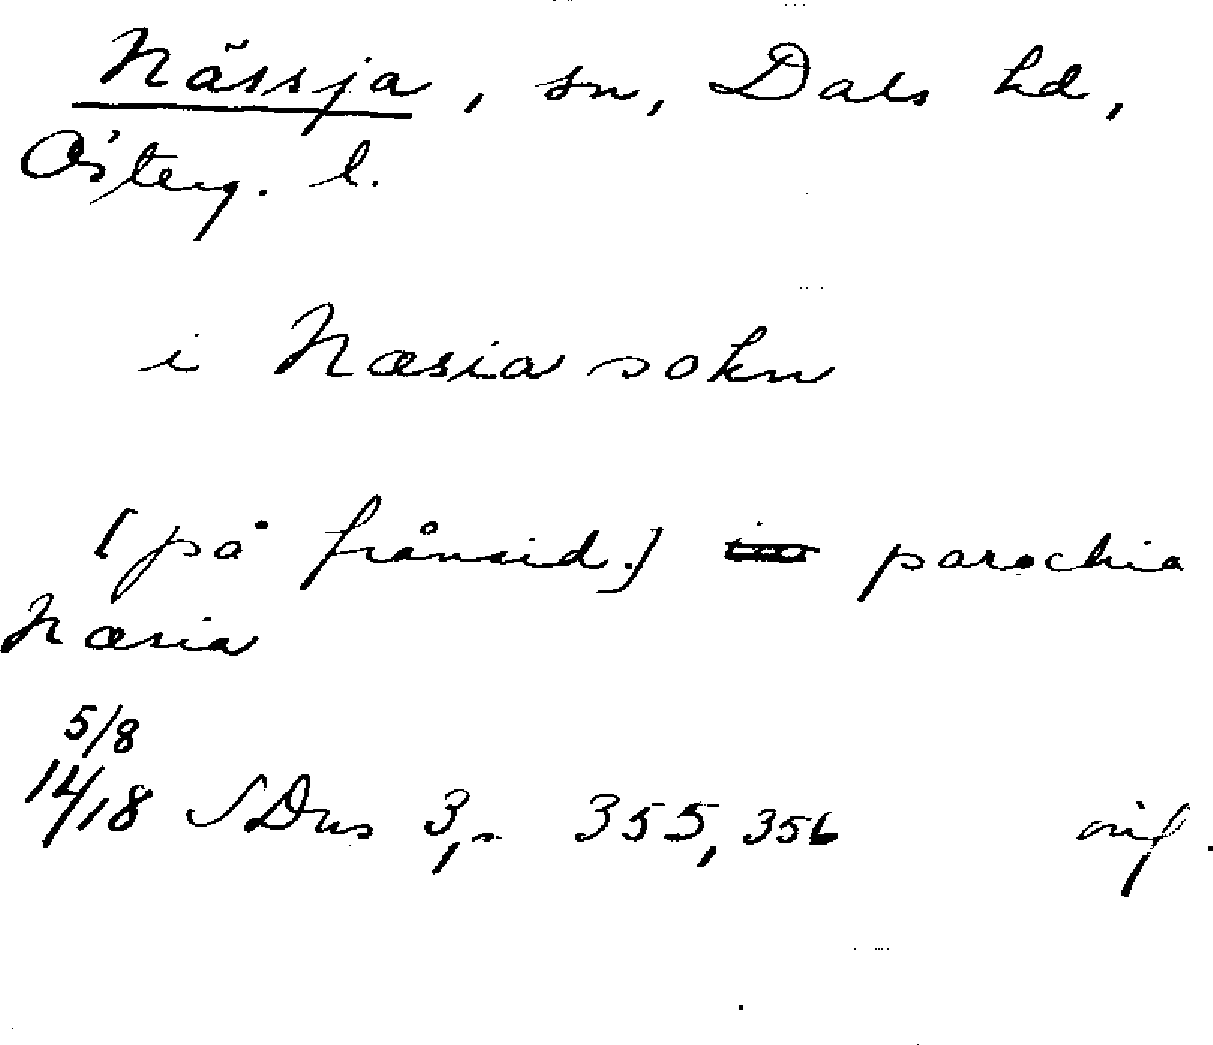 Nässja, sn, Dals hd,
Österg. l.
i Næsia sokn
[på frånsid.] parochia
Næsia
5/8
1418 SDns 3, s. 355, 356 orig.